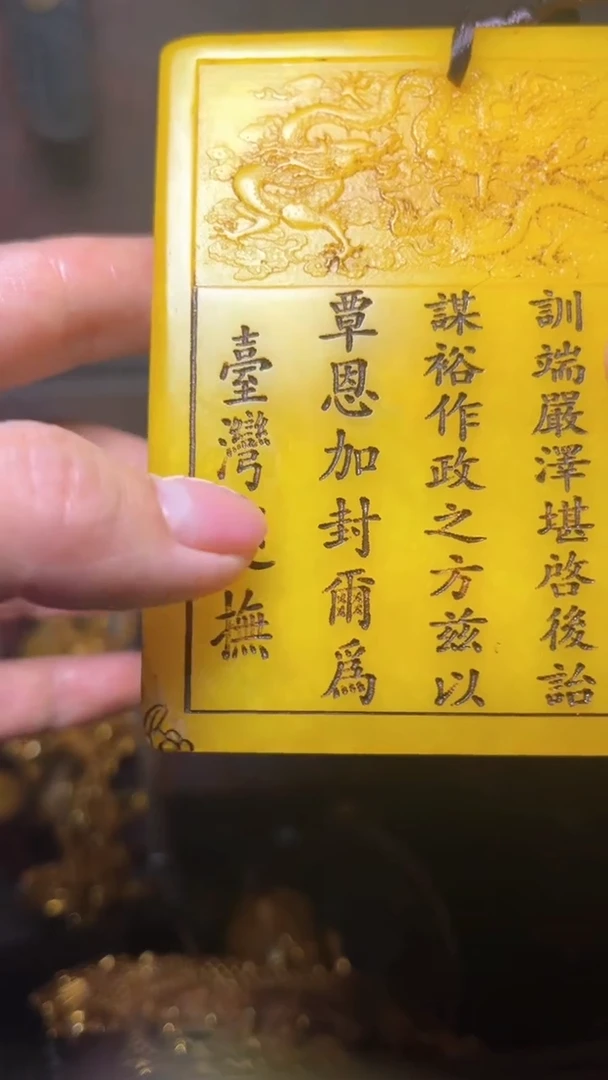 訓端嚴澤堪啓後詒
謀裕作政之方兹以
覃恩加封爾爲
臺灣撫